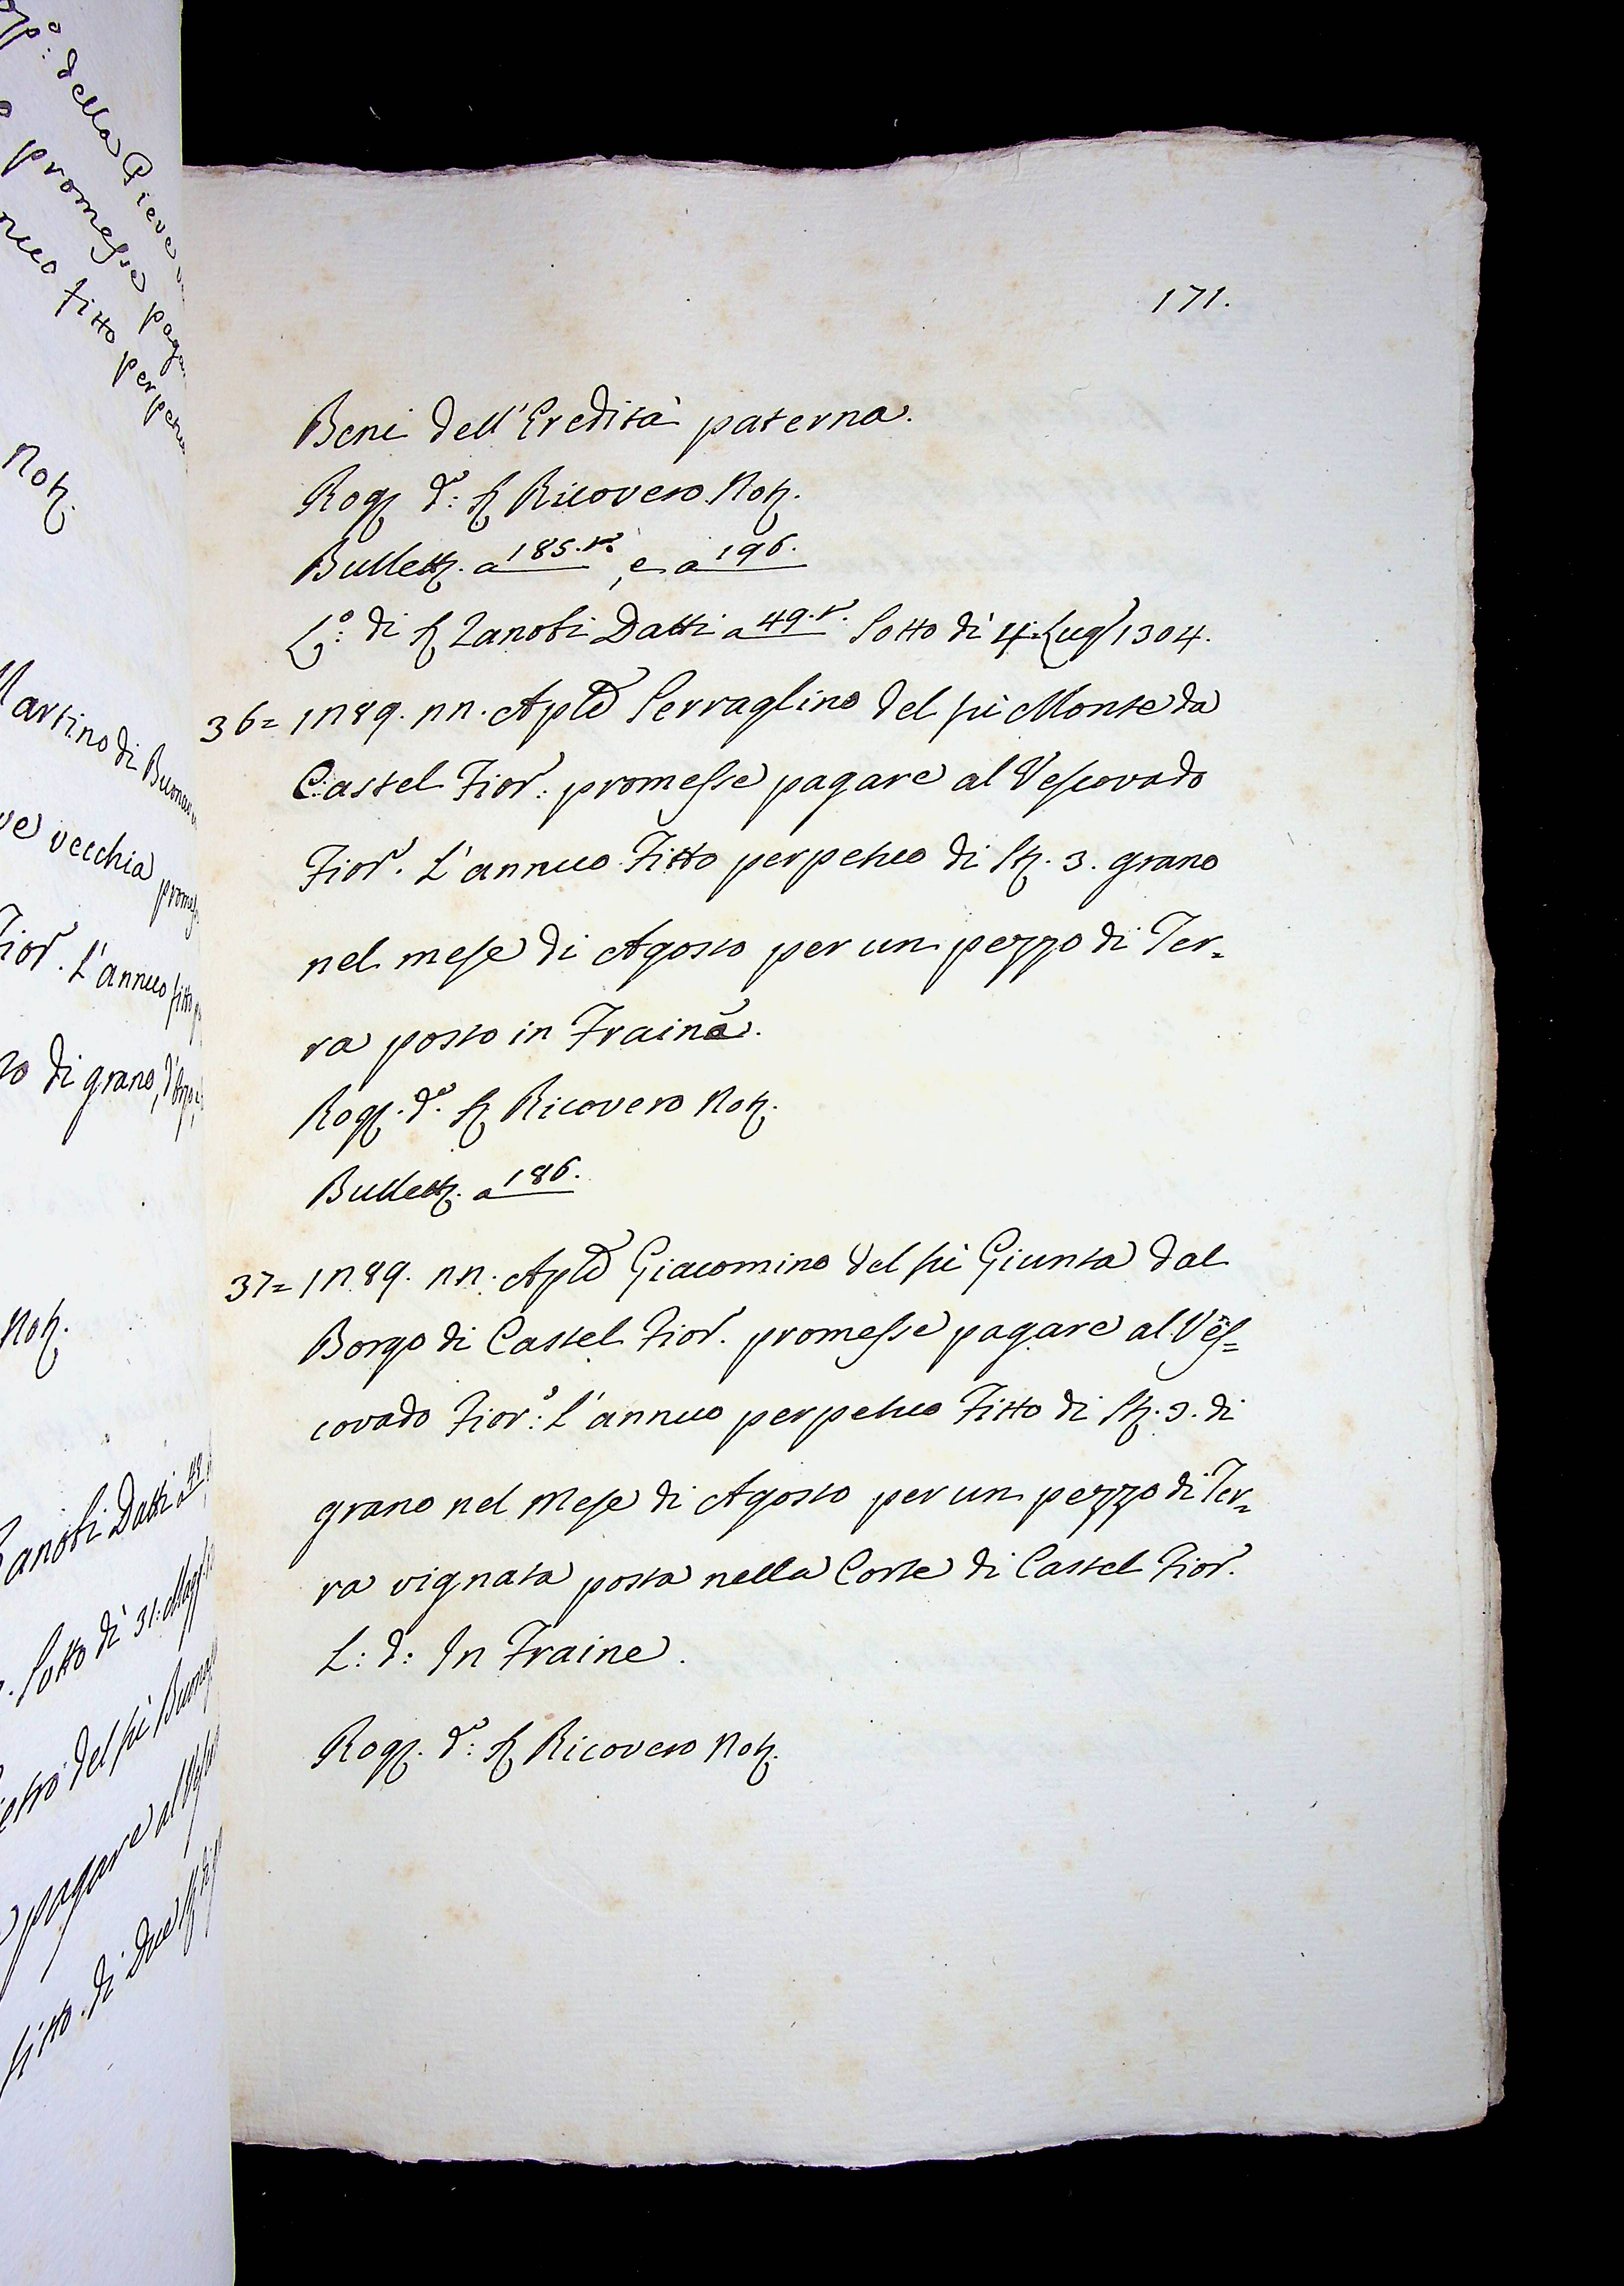 171.
Beni dell'Eredità paterna.
Rog. d.o: Ser Ricovero Not.
Bullett. a 185.vo., e a 196.
L.o: di Ser Zanobi Datti a 49.vo. Sotto dì 4. Lug. 1304.
36= 1289. 22. Aple Serraglino del fù Monte da
Castel Fior.o: promesse pagare al Vescovado
Fior.o. L'annuo Fitto perpetuo di St. 3. grano
nel mese di Agosto per un pezzo di Ter=
ra posto in Traine.
Rog. d.o. Ser Ricovero Not.
Bullett. a 186.
37= 1289. 22. Aple Giacomino del fù Giunta dal
Borgo di Castel Fior.o. promesse pagare al Ves=
covado Fior.o: L'annuo perpetuo Fitto di St. 3. di
grano nel Mese di Agosto per un pezzo di Ter=
ra vignata posta nella Corte di Castel Fior.o.
L: d: In Traine.
Rog. d.o: Ser Ricovero Not.
della Pieve
promesse
Fitto
Not.
Martino di
vecchia
Fior.o. L'annuo fitto
di grano,
Not.
Zanobi Datti a
Sotto dì 31:
del fù
pagare al
fitto di Due